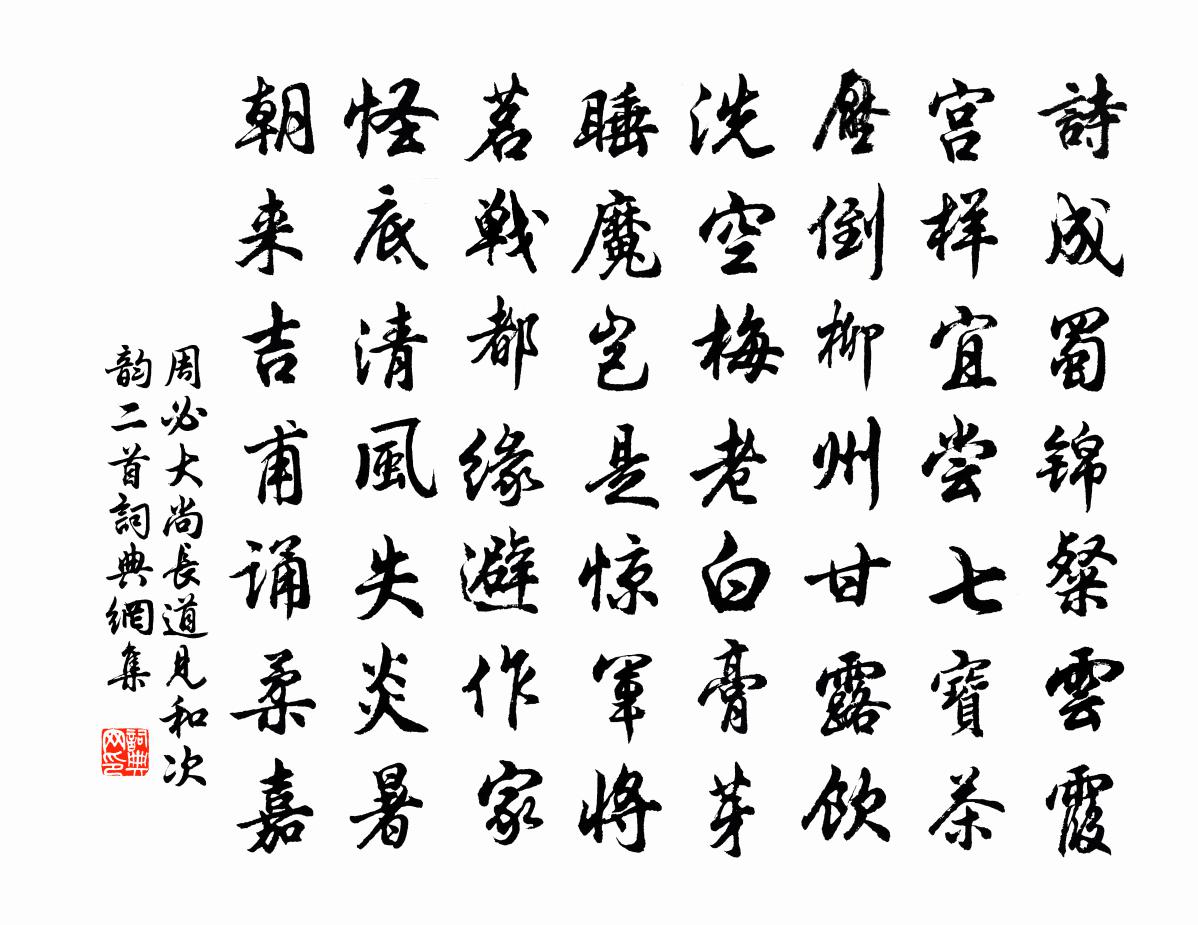 詩成蜀锦粲雲霞
宫样宜尝七寶茶
壓倒柳州甘露飲
洗空梅老白膏芽
睡魔岂是惊軍将
茗戦都缘避作家
怪底清風失炎暑
朝来吉甫诵柔嘉
周必大尚長道見和次
韵二首詞典網集
詞典
网印